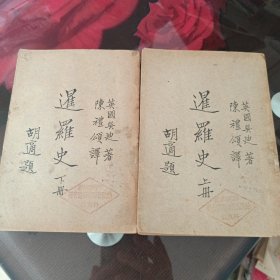 英國吳迪 著
陳禮頌 譯
暹羅史 上冊
胡適題
英國吳迪 著
陳禮頌 譯
暹羅史 下冊
胡適題